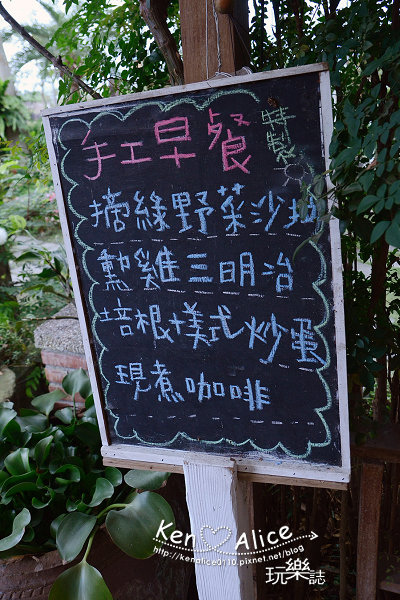 手工早餐 特製
摘綠野菜沙拉
勳雞三明治
培根+美式炒蛋
現煮咖啡
Ken Alice
http://kenalice0110.pixnet.net/blog
玩樂誌